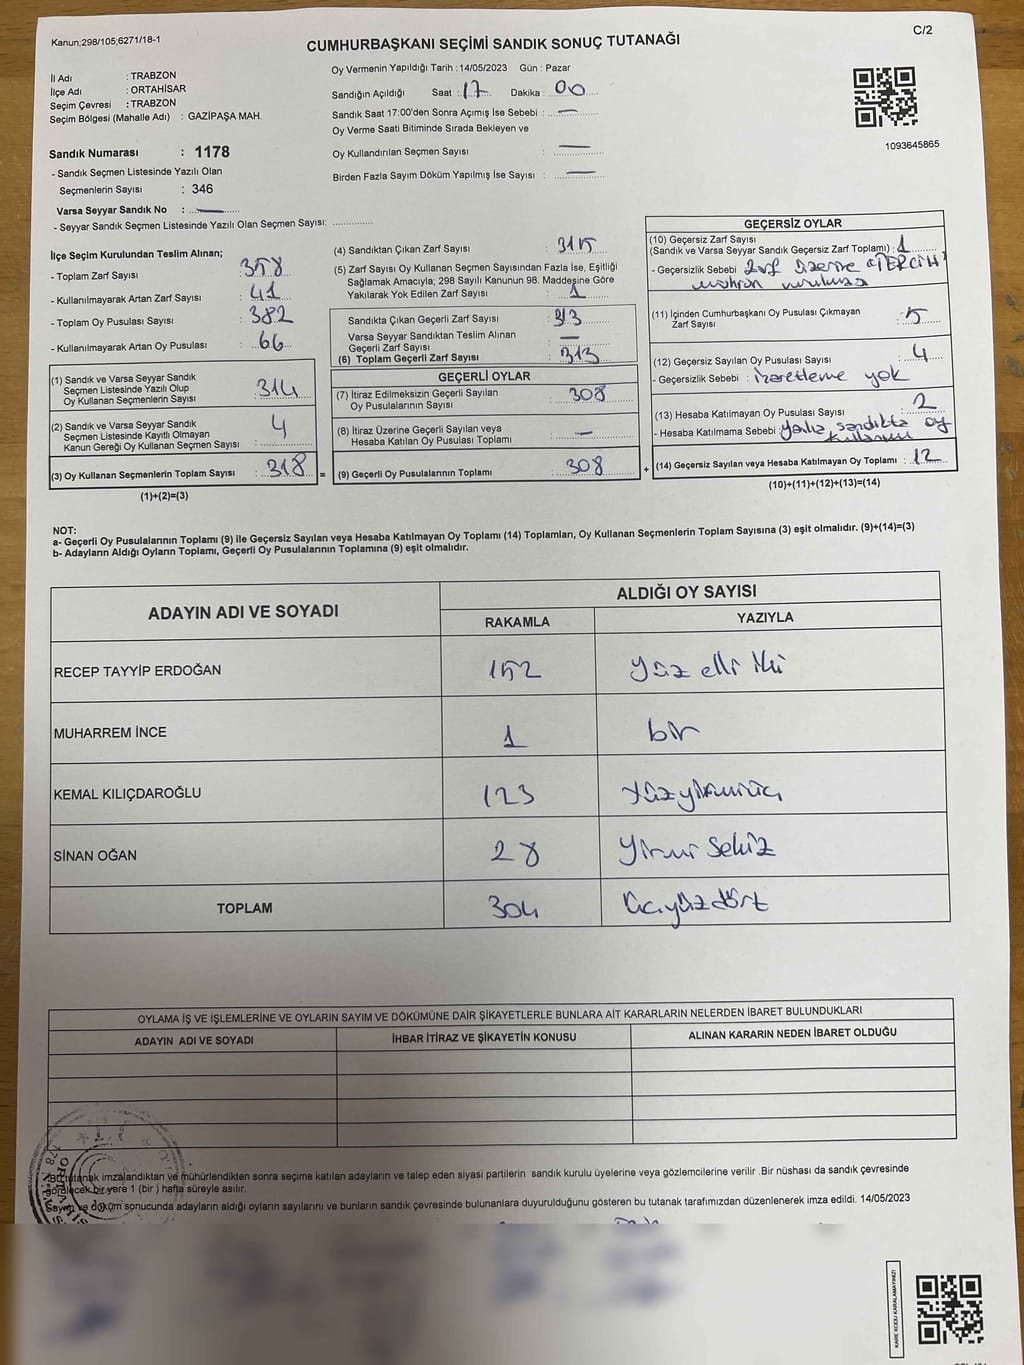 Kanun;298/105;6271/18-1
C/2
CUMHURBAŞKANI SEÇİMİ SANDIK SONUÇ TUTANAĞI
İl Adı : TRABZON
İlçe Adı : ORTAHİSAR
Seçim Çevresi : TRABZON
Seçim Bölgesi (Mahalle Adı) : GAZİPAŞA MAH.
Sandık Numarası : 1178
- Sandık Seçmen Listesinde Yazılı Olan
Seçmenlerin Sayısı : 346
Varsa Seyyar Sandık No : —
- Seyyar Sandık Seçmen Listesinde Yazılı Olan Seçmen Sayısı:
Oy Vermenin Yapıldığı Tarih :14/05/2023 Gün : Pazar
Sandığın Açıldığı Saat : 17 Dakika : 00
Sandık Saat 17:00'den Sonra Açımış İse Sebebi : —
Oy Verme Saati Bitiminde Sırada Bekleyen ve
Oy Kullandırılan Seçmen Sayısı : —
Birden Fazla Sayım Döküm Yapılmış İse Sayısı : —
1093645865
İlçe Seçim Kurulundan Teslim Alınan;
- Toplam Zarf Sayısı : 358
- Kullanılmayarak Artan Zarf Sayısı : 41
- Toplam Oy Pusulası Sayısı : 382
- Kullanılmayarak Artan Oy Pusulası : 66
(1) Sandık ve Varsa Seyyar Sandık
Seçmen Listesinde Yazılı Olup
Oy Kullanan Seçmenlerin Sayısı : 314
(2) Sandık ve Varsa Seyyar Sandık
Seçmen Listesinde Kayıtlı Olmayan
Kanun Gereği Oy Kullanan Seçmen Sayısı : 4
(3) Oy Kullanan Seçmenlerin Toplam Sayısı : 318 =
(1)+(2)=(3)
(4) Sandıktan Çıkan Zarf Sayısı : 315
(5) Zarf Sayısı Oy Kullanan Seçmen Sayısından Fazla İse, Eşitliği
Sağlamak Amacıyla; 298 Sayılı Kanunun 98. Maddesine Göre
Yakılarak Yok Edilen Zarf Sayısı : 1
Sandıkta Çıkan Geçerli Zarf Sayısı : 313
Varsa Seyyar Sandıktan Teslim Alınan
Geçerli Zarf Sayısı : —
(6) Toplam Geçerli Zarf Sayısı : 313
GEÇERLİ OYLAR
(7) İtiraz Edilmeksizin Geçerli Sayılan
Oy Pusulalarının Sayısı : 308
(8) İtiraz Üzerine Geçerli Sayılan veya
Hesaba Katılan Oy Pusulası Toplamı : —
(9) Geçerli Oy Pusulalarının Toplamı : 308 +
GEÇERSİZ OYLAR
(10) Geçersiz Zarf Sayısı
(Sandık ve Varsa Seyyar Sandık Geçersiz Zarf Toplamı) : 1
- Geçersizlik Sebebi : Zarf üzerine "TERCİH"
mührün vurulması
(11) İçinden Cumhurbaşkanı Oy Pusulası Çıkmayan
Zarf Sayısı : 5
(12) Geçersiz Sayılan Oy Pusulası Sayısı : 4
- Geçersizlik Sebebi : işaretleme yok
(13) Hesaba Katılmayan Oy Pusulası Sayısı : 2
- Hesaba Katılmama Sebebi : yanlış sandıkta oy
kullanması
(14) Geçersiz Sayılan veya Hesaba Katılmayan Oy Toplamı : 12
(10)+(11)+(12)+(13)=(14)
NOT:
a- Geçerli Oy Pusulalarının Toplamı (9) ile Geçersiz Sayılan veya Hesaba Katılmayan Oy Toplamı (14) Toplamları, Oy Kullanan Seçmenlerin Toplam Sayısına (3) eşit olmalıdır. (9)+(14)=(3)
b- Adayların Aldığı Oyların Toplamı, Geçerli Oy Pusulalarının Toplamına (9) eşit olmalıdır.
ADAYIN ADI VE SOYADI ALDIĞI OY SAYISI
RAKAMLA YAZIYLA
RECEP TAYYİP ERDOĞAN 152 Yüz elli iki
MUHARREM İNCE 1 bir
KEMAL KILIÇDAROĞLU 123 Yüzyirmiüç
SİNAN OĞAN 28 Yirmi Sekiz
TOPLAM 304 Üçyüzdört
OYLAMA İŞ VE İŞLEMLERİNE VE OYLARIN SAYIM VE DÖKÜMÜNE DAİR ŞİKAYETLERLE BUNLARA AİT KARARLARIN NELERDEN İBARET BULUNDUKLARI
ADAYIN ADI VE SOYADI İHBAR İTİRAZ VE ŞİKAYETİN KONUSU ALINAN KARARIN NEDEN İBARET OLDUĞU
Bu tutanak imzalandıktan ve mühürlendikten sonra seçime katılan adayların ve talep eden siyasi partilerin sandık kurulu üyelerine veya gözlemcilerine verilir .Bir nüshası da sandık çevresinde
görülecek bir yere 1 (bir ) hafta süreyle asılır.
Sayım ve döküm sonucunda adayların aldığı oyların sayılarını ve bunların sandık çevresinde bulunanlara duyurulduğunu gösteren bu tutanak tarafımızdan düzenlenerek imza edildi. 14/05/2023
KARE KODU KARALAMAYINIZ!